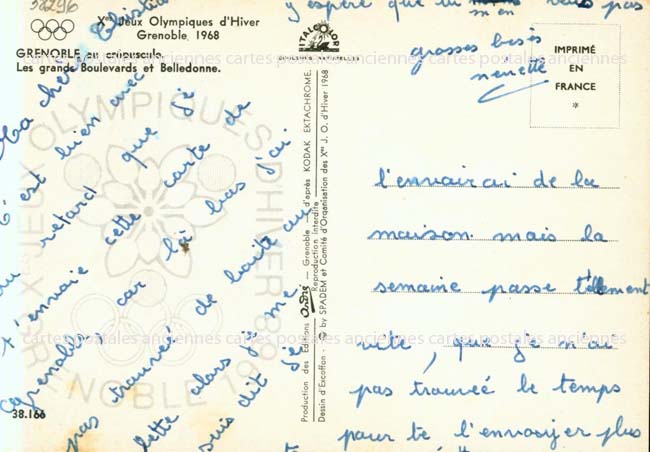 52296
Xes Jeux Olympiques d'Hiver
Grenoble 1968
GRENOBLE au crépuscule.
Les grands Boulevards et Belledonne.
Ma chère Christia
C'est bien avec
du retard que je
t'envoie cette carte de
Grenoble, car là bas j'ai
pas trouvée de boite au
lettre alors je me
suis dit je
l'envairai de la
maison mais la
semaine passe tellement
vite, que je n'ai
pas trouvée le temps
pour te l'envoyer plus
y espère que tu m'en veus pas
grosses besès
nenette
ITALCOLOR
IMPRIMÉ
EN
FRANCE
*
Production des Editions André — Grenoble — d'après KODAK EKTACHROME.
Reproduction interdite
Dessin d'Excoffon - © by SPADEM et Comité d'Organisation des Xes J. O. d'Hiver 1968
38.166
Xes JEUX OLYMPIQUES D'HIVER
GRENOBLE 1968
cartes postales anciennes cartes postales anciennes cartes postales anciennes
cartes postales anciennes cartes postales anciennes cartes postales anciennes